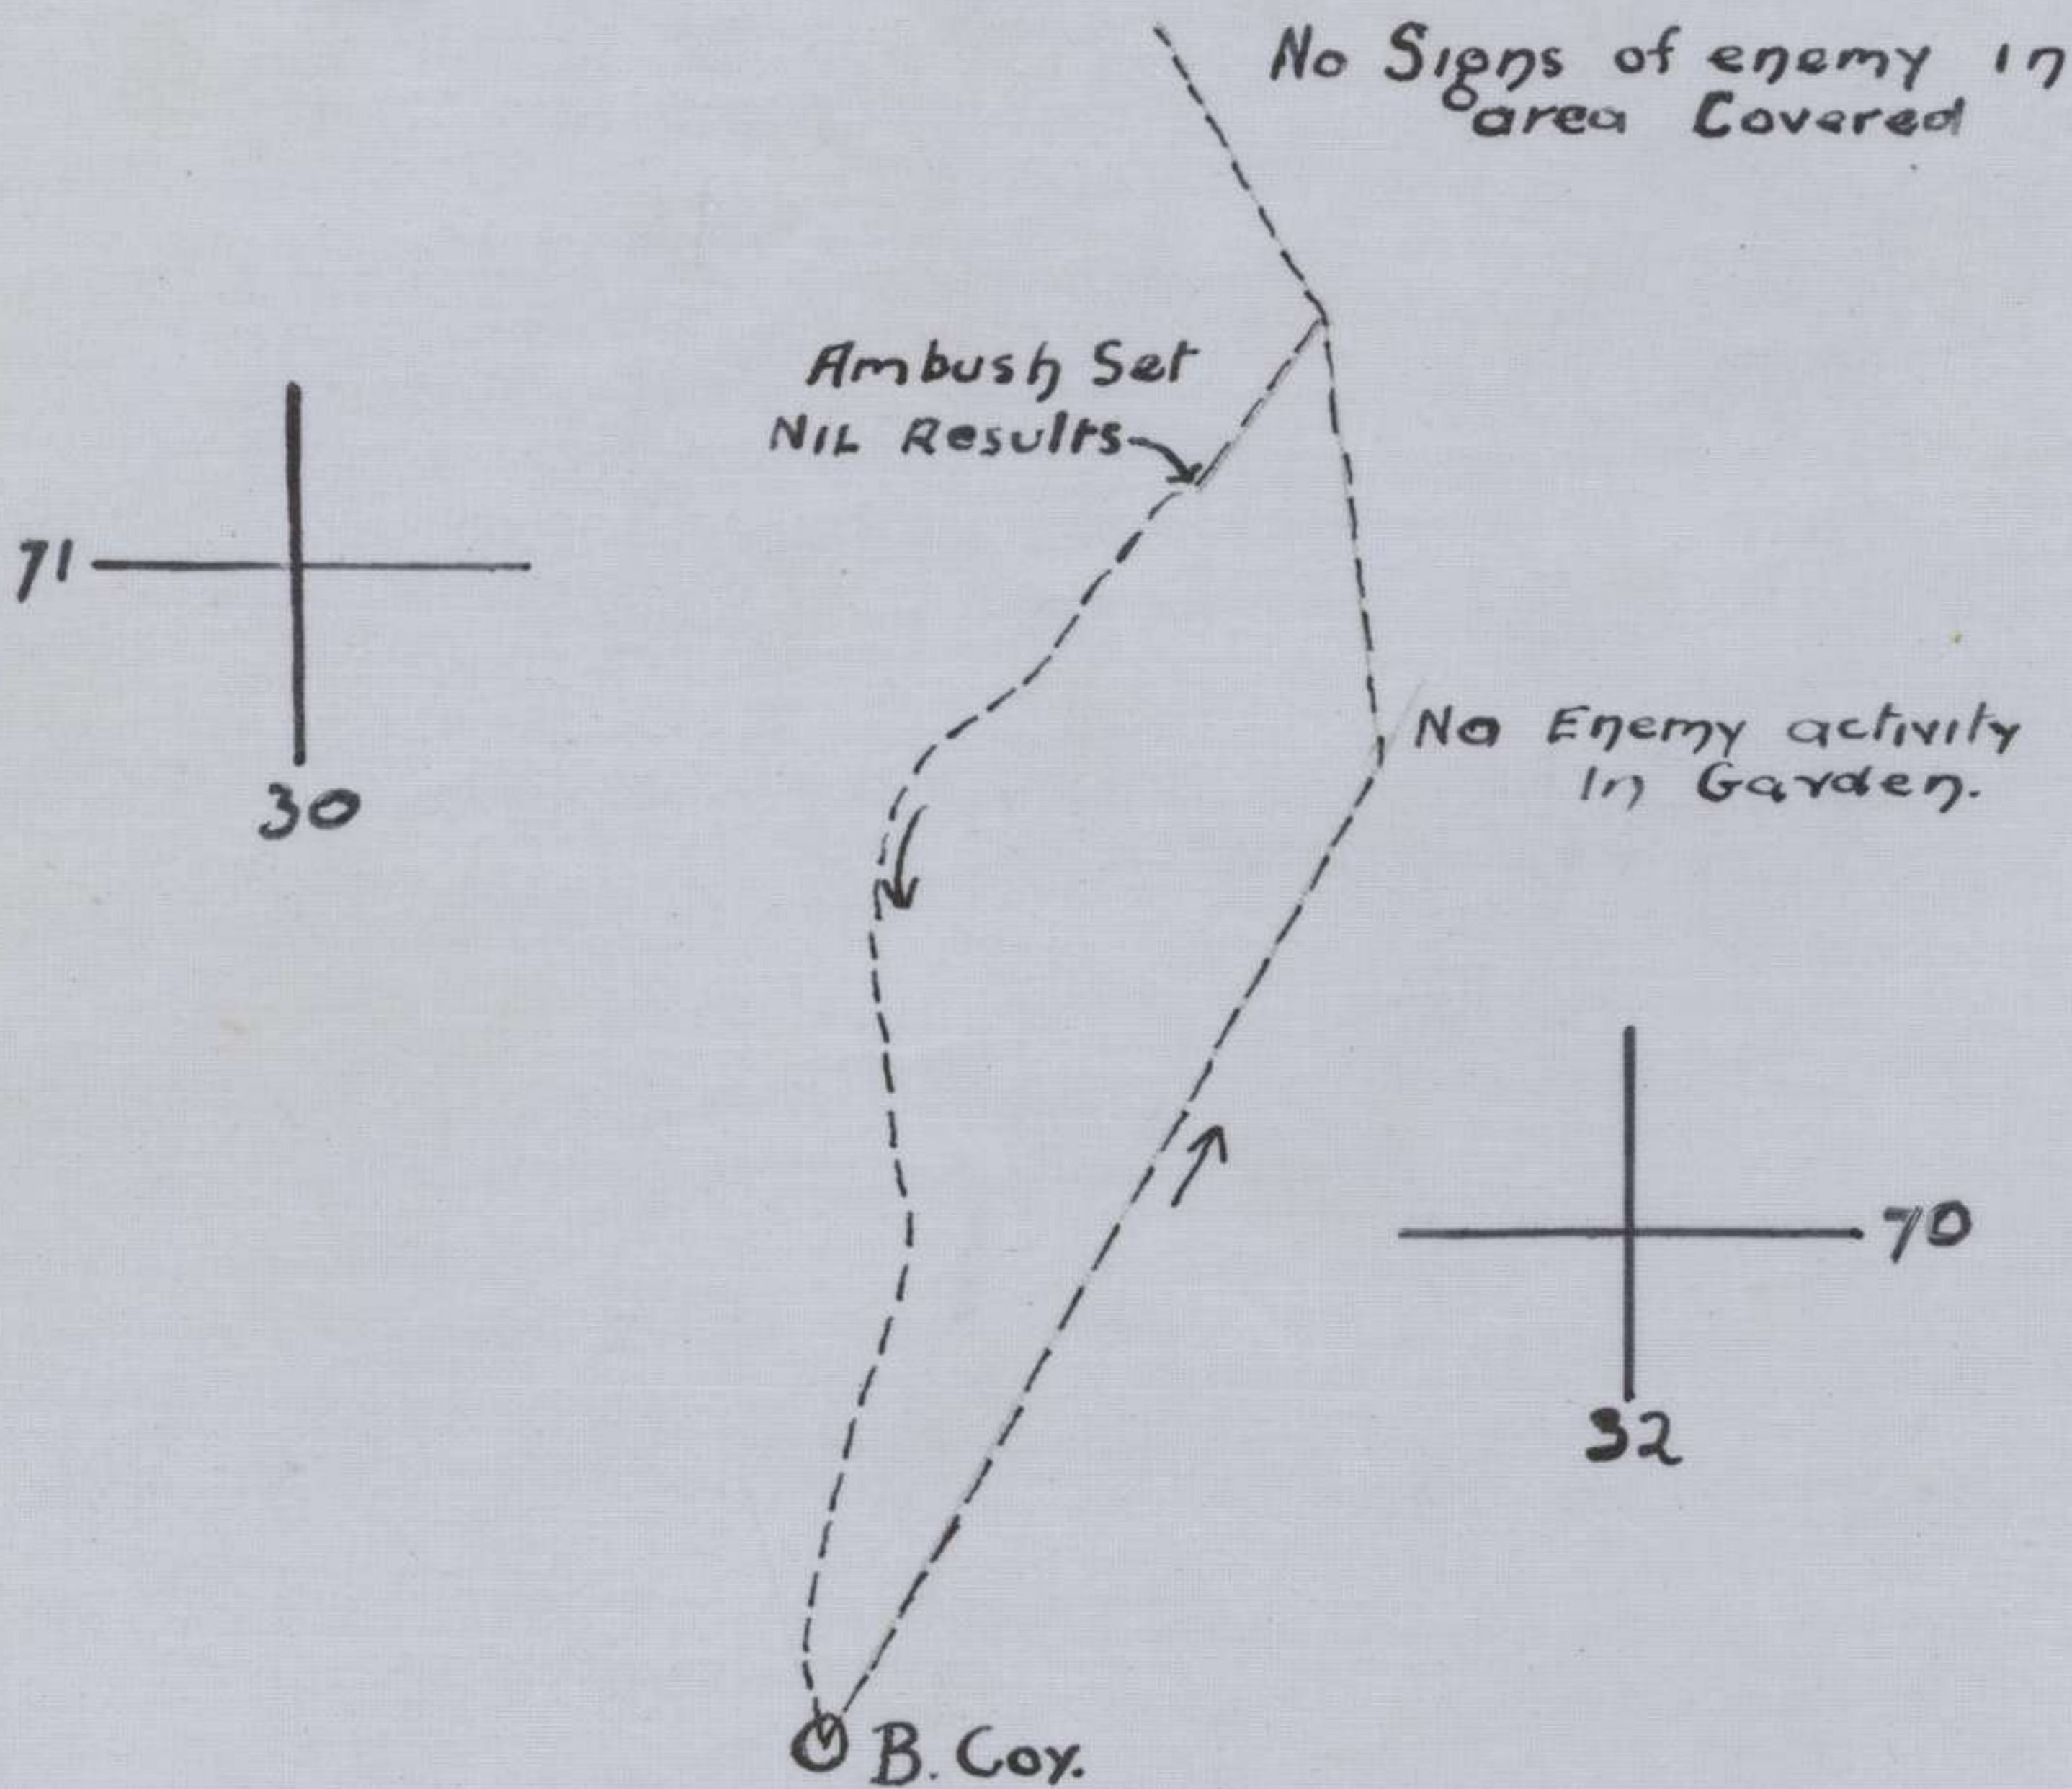 No Signs of enemy in
area Covered
Ambush Set
NIL Results
71
30
No Enemy activity
In Garden.
70
32
B. Coy.